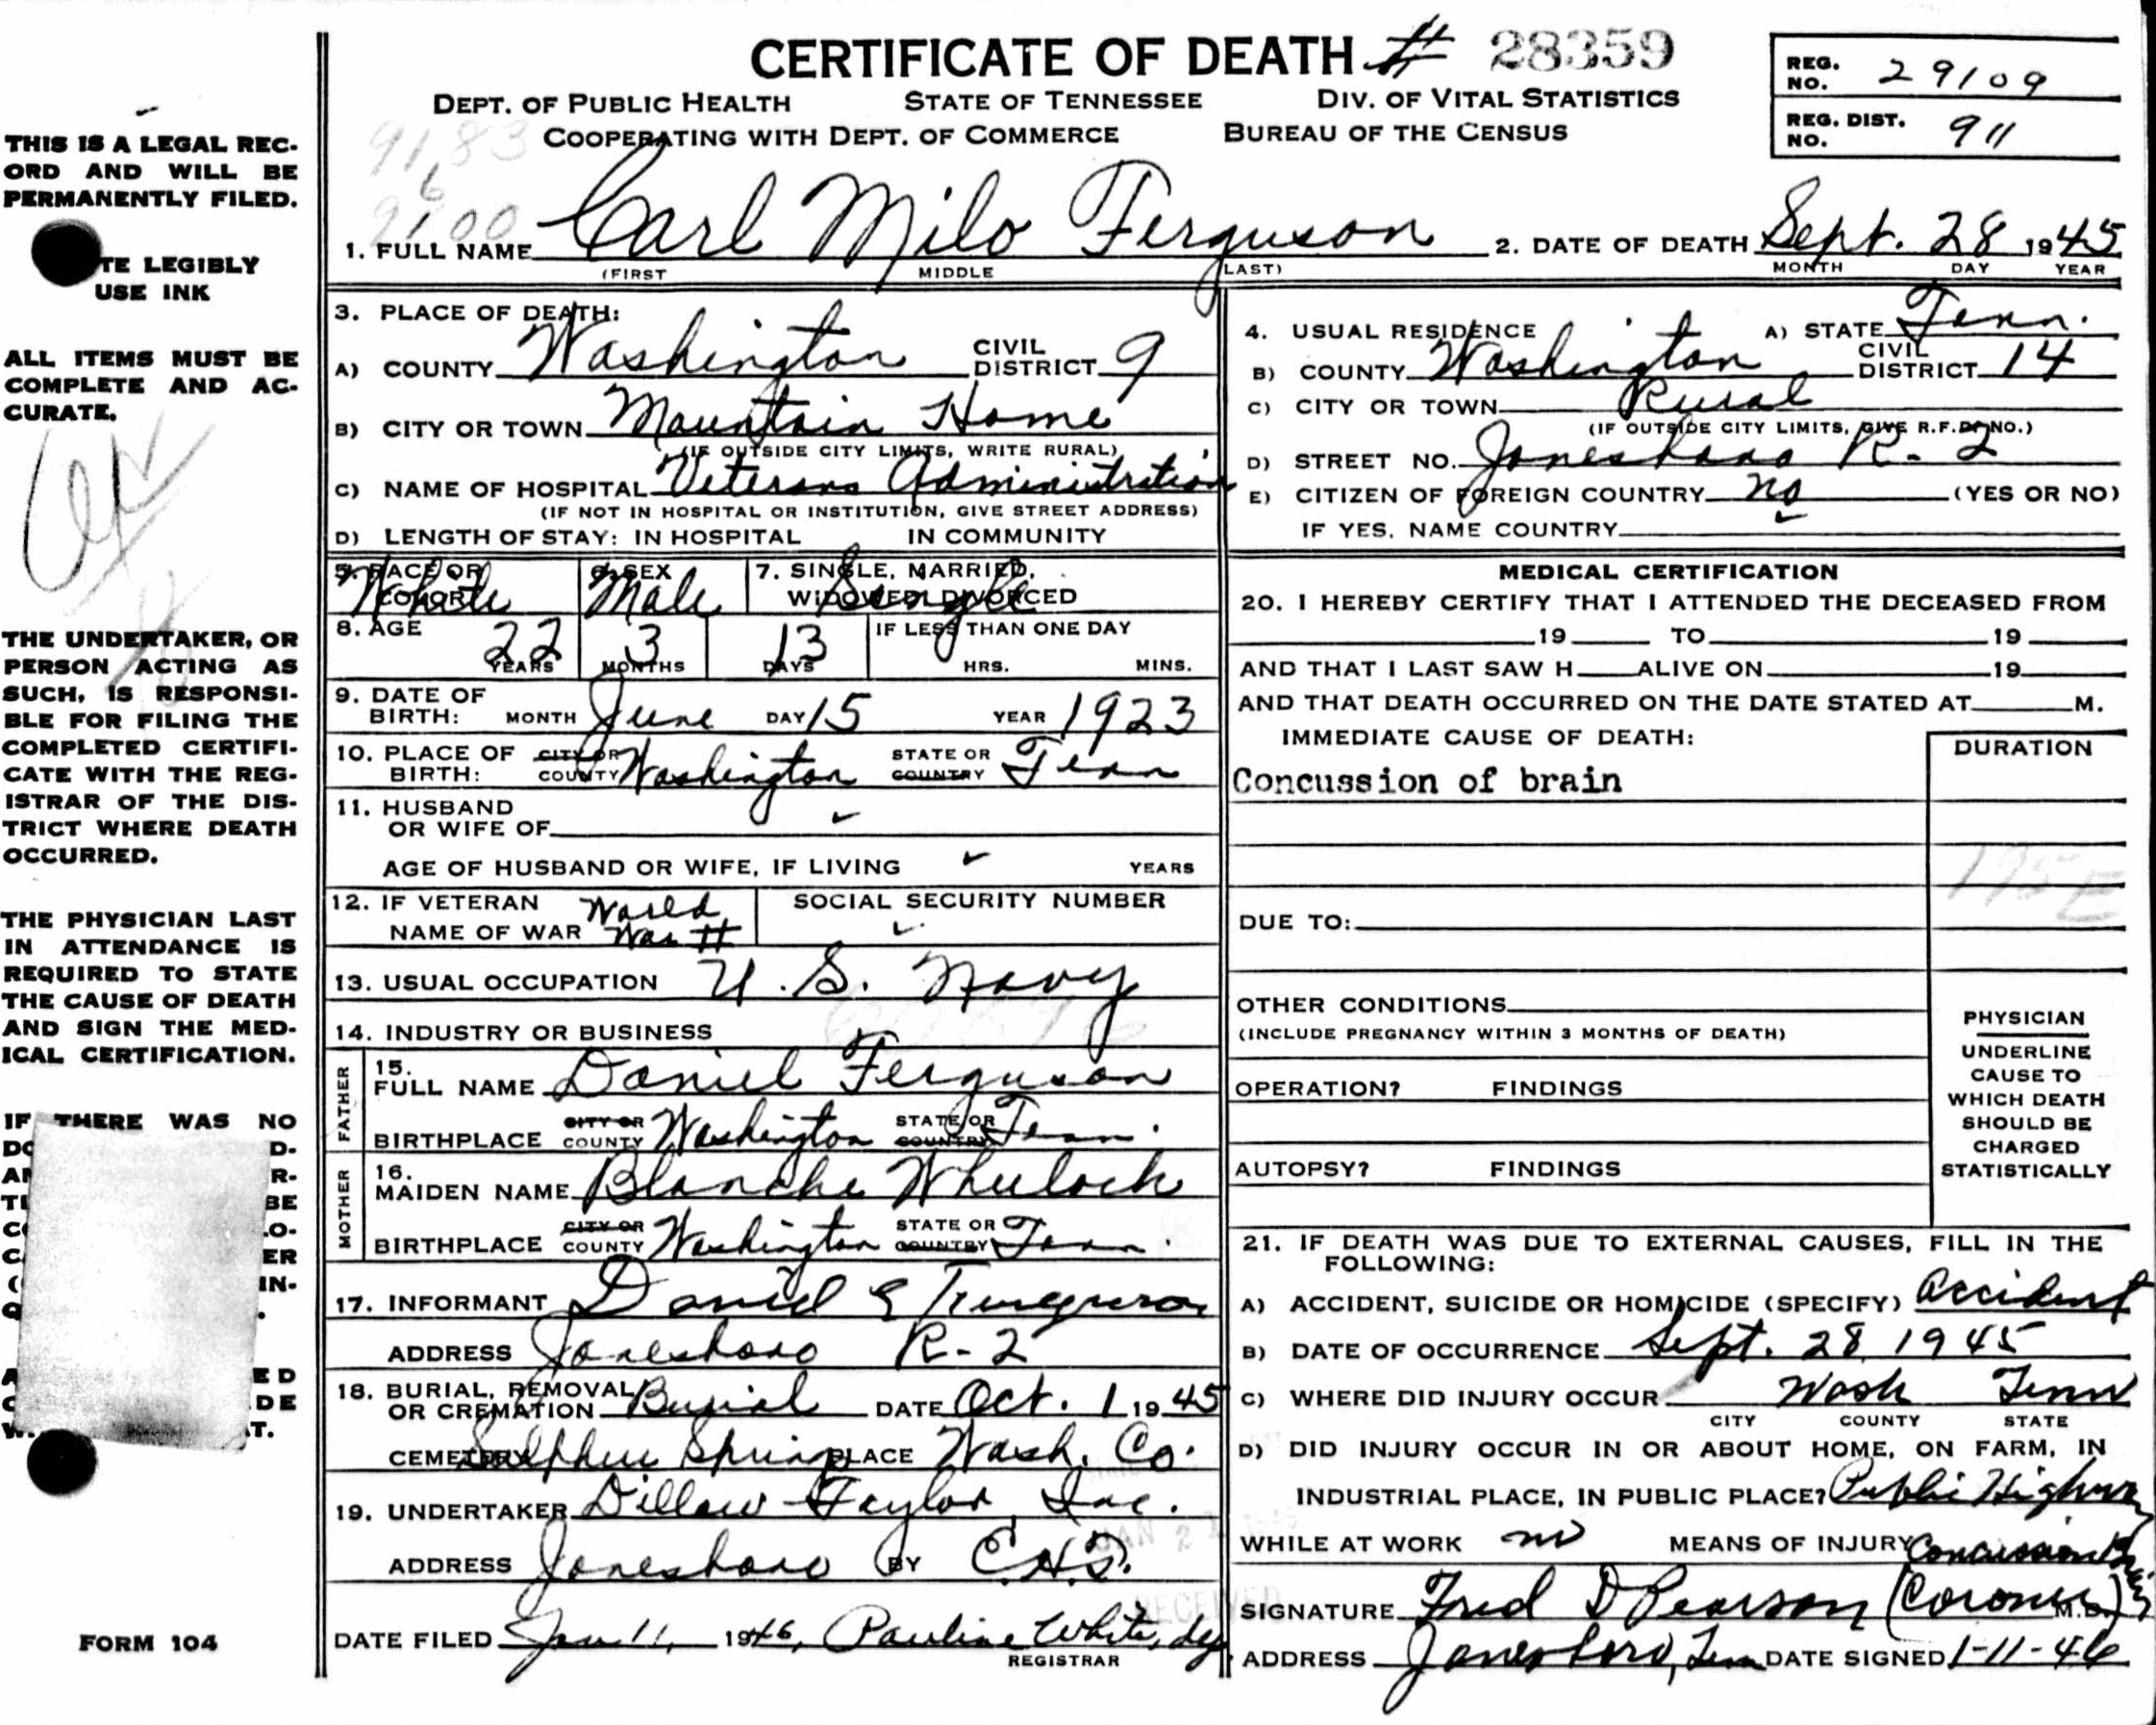 CERTIFICATE OF DEATH # 28359
REG. NO. 29109
DEPT. OF PUBLIC HEALTH STATE OF TENNESSEE DIV. OF VITAL STATISTICS
COOPERATING WITH DEPT. OF COMMERCE BUREAU OF THE CENSUS
REG. DIST. NO. 911
9183
6
9100
THIS IS A LEGAL REC-
ORD AND WILL BE
PERMANENTLY FILED.
TE LEGIBLY
USE INK
ALL ITEMS MUST BE
COMPLETE AND AC-
CURATE.
THE UNDERTAKER, OR
PERSON ACTING AS
SUCH, IS RESPONSI-
BLE FOR FILING THE
COMPLETED CERTIFI-
CATE WITH THE REG-
ISTRAR OF THE DIS-
TRICT WHERE DEATH
OCCURRED.
THE PHYSICIAN LAST
IN ATTENDANCE IS
REQUIRED TO STATE
THE CAUSE OF DEATH
AND SIGN THE MED-
ICAL CERTIFICATION.
IF THERE WAS NO
FORM 104
1. FULL NAME Carl Milo Ferguson 2. DATE OF DEATH Sept. 28 1945
(FIRST MIDDLE LAST) MONTH DAY YEAR
3. PLACE OF DEATH:
A) COUNTY Washington CIVIL DISTRICT 9
B) CITY OR TOWN Mountain Home
(IF OUTSIDE CITY LIMITS, WRITE RURAL)
C) NAME OF HOSPITAL Veterans Administration
(IF NOT IN HOSPITAL OR INSTITUTION, GIVE STREET ADDRESS)
D) LENGTH OF STAY: IN HOSPITAL IN COMMUNITY
4. USUAL RESIDENCE A) STATE Tenn.
B) COUNTY Washington CIVIL DISTRICT 14
C) CITY OR TOWN Rural
(IF OUTSIDE CITY LIMITS, GIVE R.F.D. NO.)
D) STREET NO. Jonesboro R-2
E) CITIZEN OF FOREIGN COUNTRY no (YES OR NO)
IF YES, NAME COUNTRY
5. RACE OR COLOR White 6. SEX Male 7. SINGLE, MARRIED, WIDOWED, DIVORCED Single
8. AGE 22 YEARS 3 MONTHS 13 DAYS IF LESS THAN ONE DAY HRS. MINS.
9. DATE OF BIRTH: MONTH June DAY 15 YEAR 1923
10. PLACE OF BIRTH: CITY OR COUNTY Washington STATE OR COUNTRY Tenn
11. HUSBAND
OR WIFE OF
AGE OF HUSBAND OR WIFE, IF LIVING YEARS
12. IF VETERAN NAME OF WAR World War II SOCIAL SECURITY NUMBER
13. USUAL OCCUPATION U.S. Navy
14. INDUSTRY OR BUSINESS
FATHER
15. FULL NAME Daniel Ferguson
BIRTHPLACE CITY OR COUNTY Washington STATE OR COUNTRY Tenn.
MOTHER
16. MAIDEN NAME Blanche Wheelock
BIRTHPLACE CITY OR COUNTY Washington STATE OR COUNTRY Tenn.
17. INFORMANT Daniel E
ADDRESS Jonesboro R-2
18. BURIAL, REMOVAL OR CREMATION Burial DATE Oct. 1 1945
CEMETERY Sulpher Springs PLACE Wash. Co.
19. UNDERTAKER Dillow-Taylor, Inc.
ADDRESS Jonesboro BY
DATE FILED Jan 11, 1946, Pauline White, dep.
REGISTRAR
MEDICAL CERTIFICATION
20. I HEREBY CERTIFY THAT I ATTENDED THE DECEASED FROM
19 TO 19
AND THAT I LAST SAW H ALIVE ON 19
AND THAT DEATH OCCURRED ON THE DATE STATED AT M.
IMMEDIATE CAUSE OF DEATH: DURATION
Concussion of brain
DUE TO:
OTHER CONDITIONS
(INCLUDE PREGNANCY WITHIN 3 MONTHS OF DEATH)
OPERATION? FINDINGS
AUTOPSY? FINDINGS
PHYSICIAN
UNDERLINE
CAUSE TO
WHICH DEATH
SHOULD BE
CHARGED
STATISTICALLY
21. IF DEATH WAS DUE TO EXTERNAL CAUSES, FILL IN THE
FOLLOWING:
A) ACCIDENT, SUICIDE OR HOMICIDE (SPECIFY) Accident
B) DATE OF OCCURRENCE Sept. 28 1945
C) WHERE DID INJURY OCCUR Wash Tenn
CITY COUNTY STATE
D) DID INJURY OCCUR IN OR ABOUT HOME, ON FARM, IN
INDUSTRIAL PLACE, IN PUBLIC PLACE? Public Highway
WHILE AT WORK no MEANS OF INJURY Concussion Brain
SIGNATURE Fred D Pearson (Coroner) M.D.
ADDRESS Jonesboro, Tenn DATE SIGNED 1-11-46